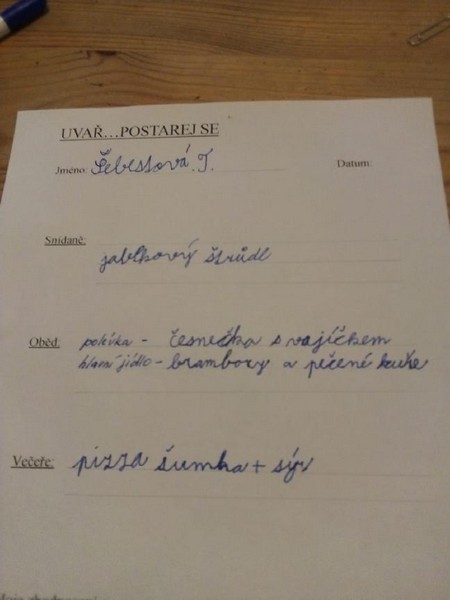 UVAŘ...POSTAREJ SE
Jméno: Šebestová. T. Datum:
Snídaně:
jablkový štrůdl
Oběd: polévka - česnečka s vajíčkem
hlavní jídlo - brambory a pečené kuře
Večeře: pizza šunka + sýr